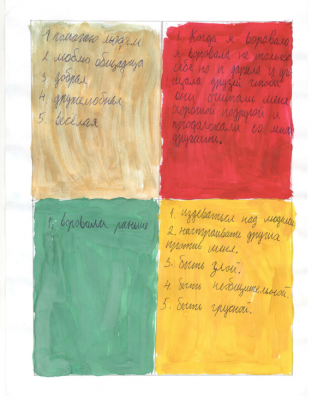 1 помогаю людям
2 люблю общаться
3 добрая
4 дружелюбная
5 весёлая
1. Когда я воровала,
я воровала не только
себе но и дарила и
друзей чтобы
они считали меня
хорошей подругой и
продолжали со мной
дружить.
1. воровала раньше
1. издеваться над людьми
2. настраивать других
против меня.
3. быть злой.
4 быть необщительной.
5. быть грустной.